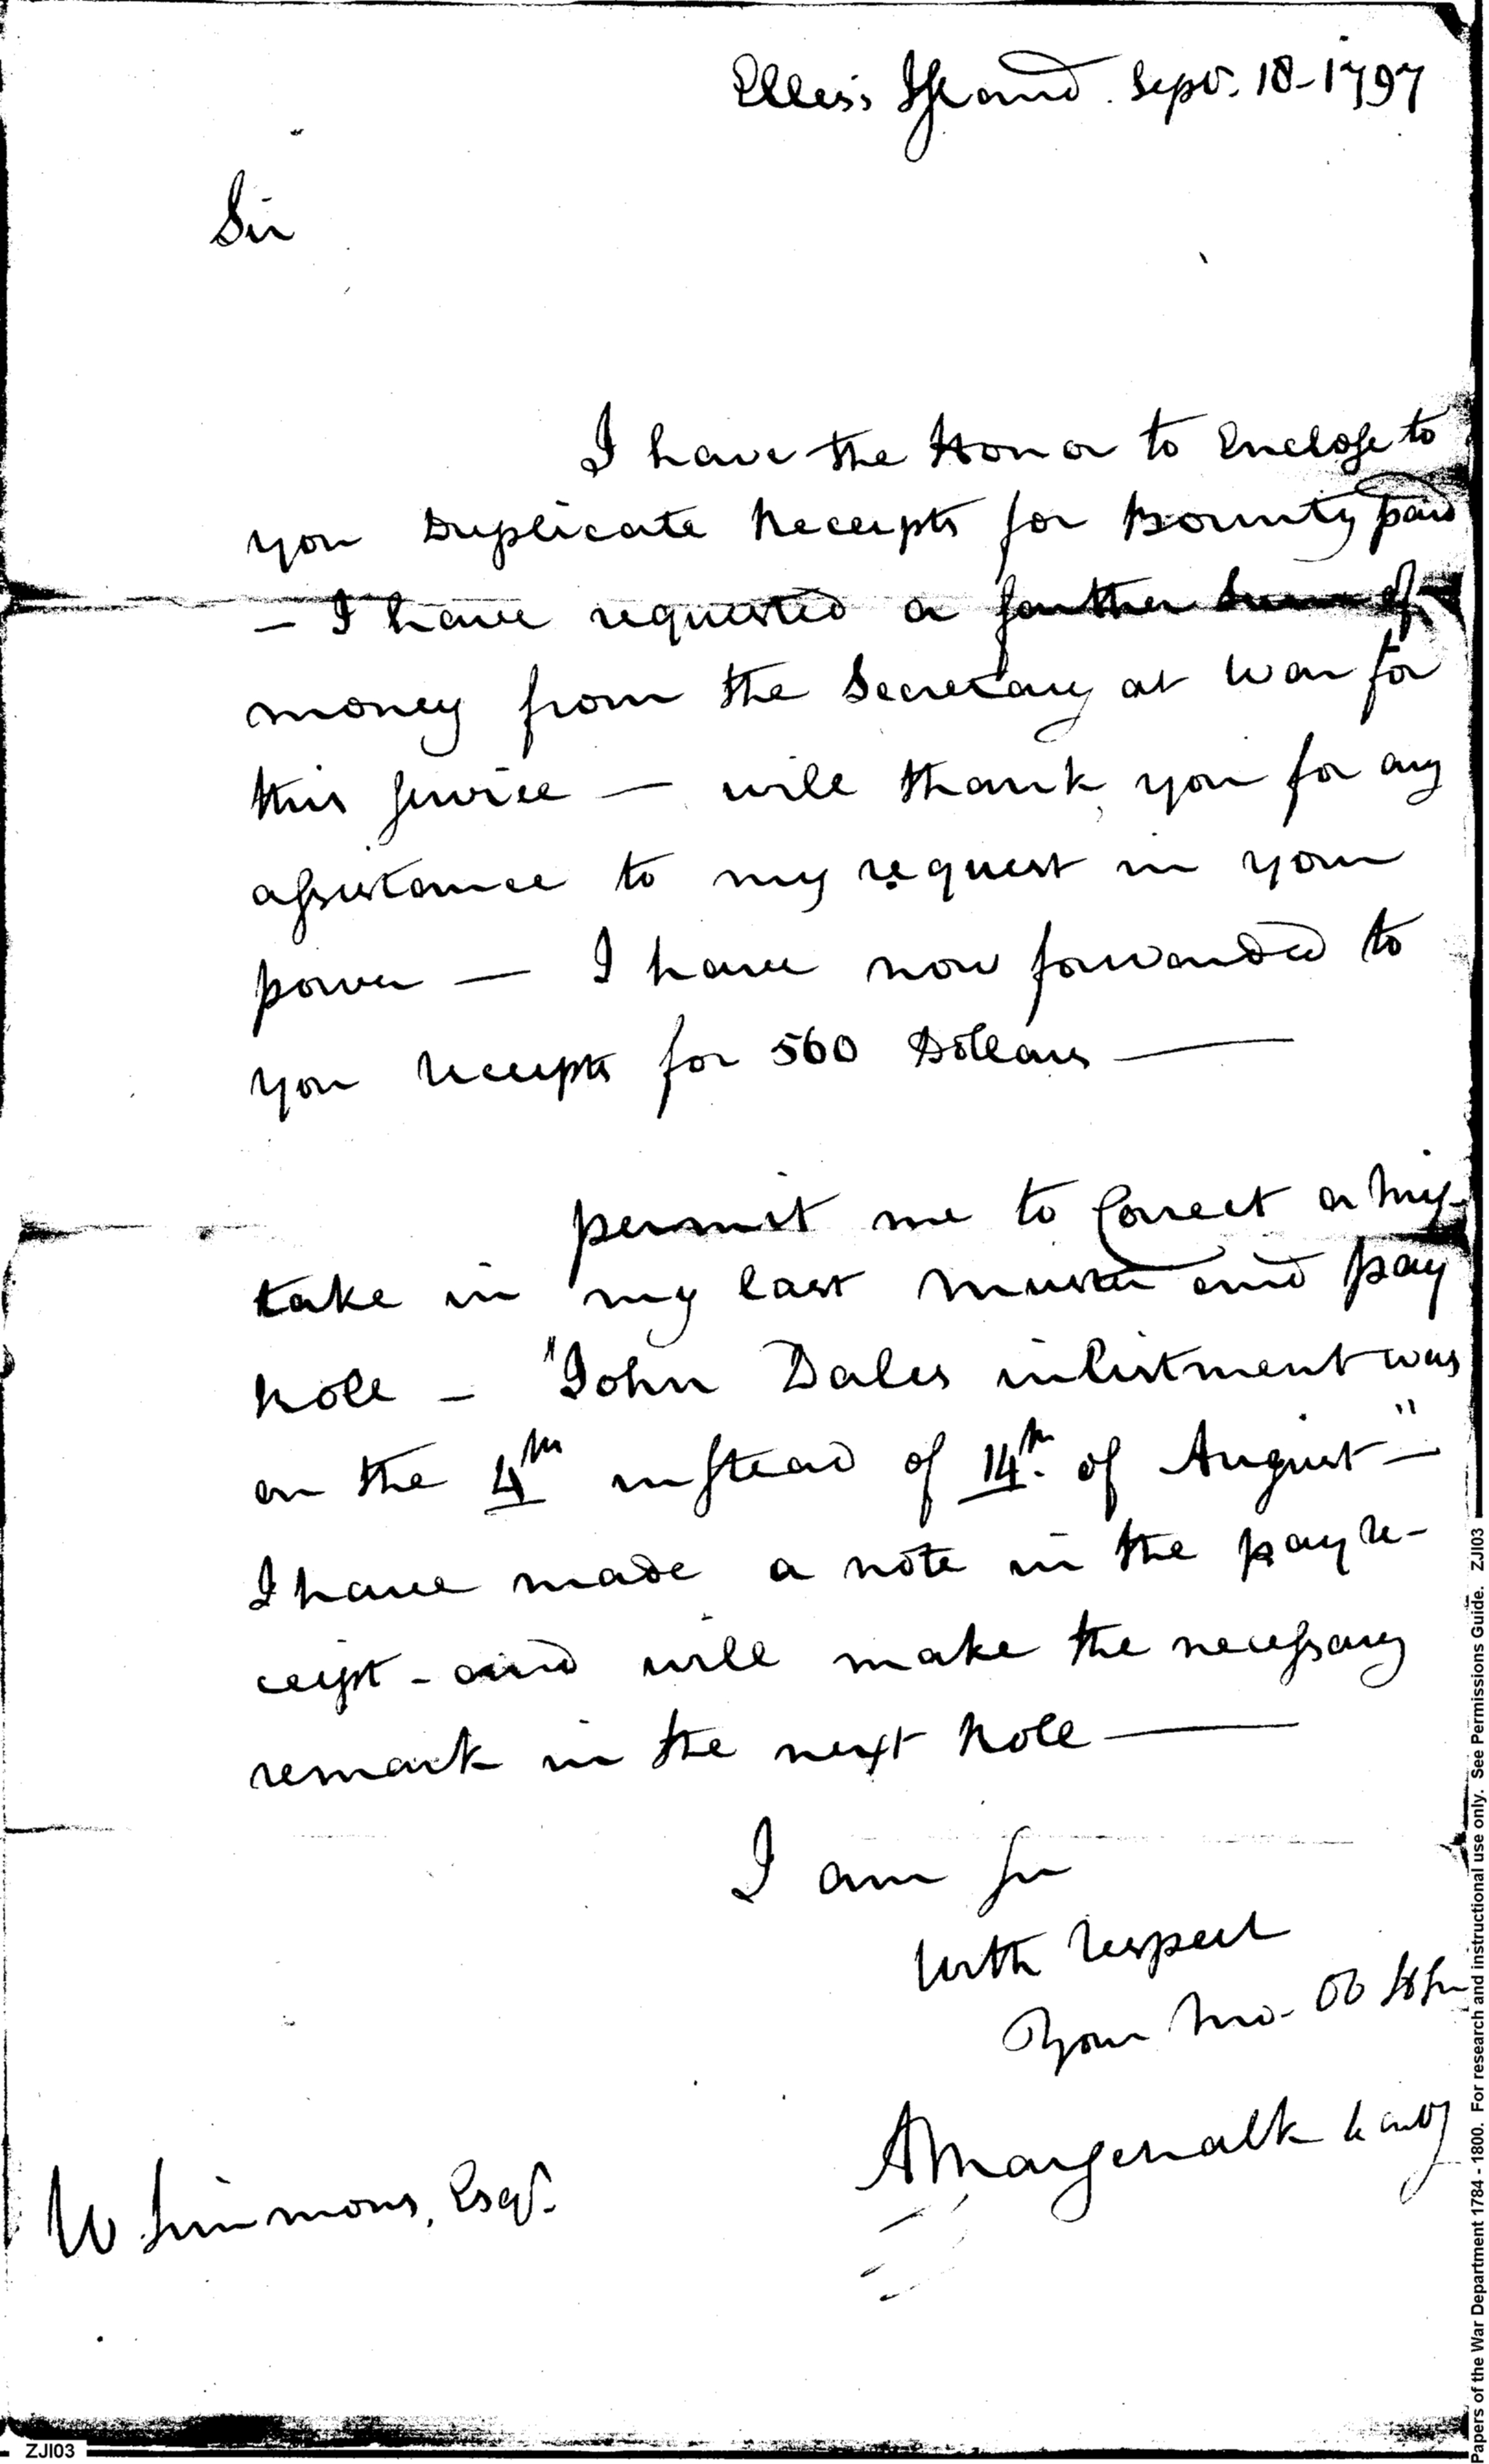 Ellis's Island. Sept. 18-1797
Sir
I have the Honor to Enclose to
you Duplicate Receipts for Bounty paid
— I have requested a farther Sum of
money from the Secretary at War for
this service — will thank you for any
assistance to my request in your
power — I have now forwarded to
you receipts for 560 Dollars —
permit me to Correct a mis-
take in my last muster and pay
Role – "John Dales inlistment was
on the 4th instead of 14th. of August" —
I have made a note in the pay re-
ceipt - and will make the necessary
remark in the next Role —
I am Sir
With respect
Your Mo- Ob
W Simmons, Esqr.
ZJI03
Papers of the War Department 1784 - 1800. For research and instructional use only. See Permissions Guide. ZJI03